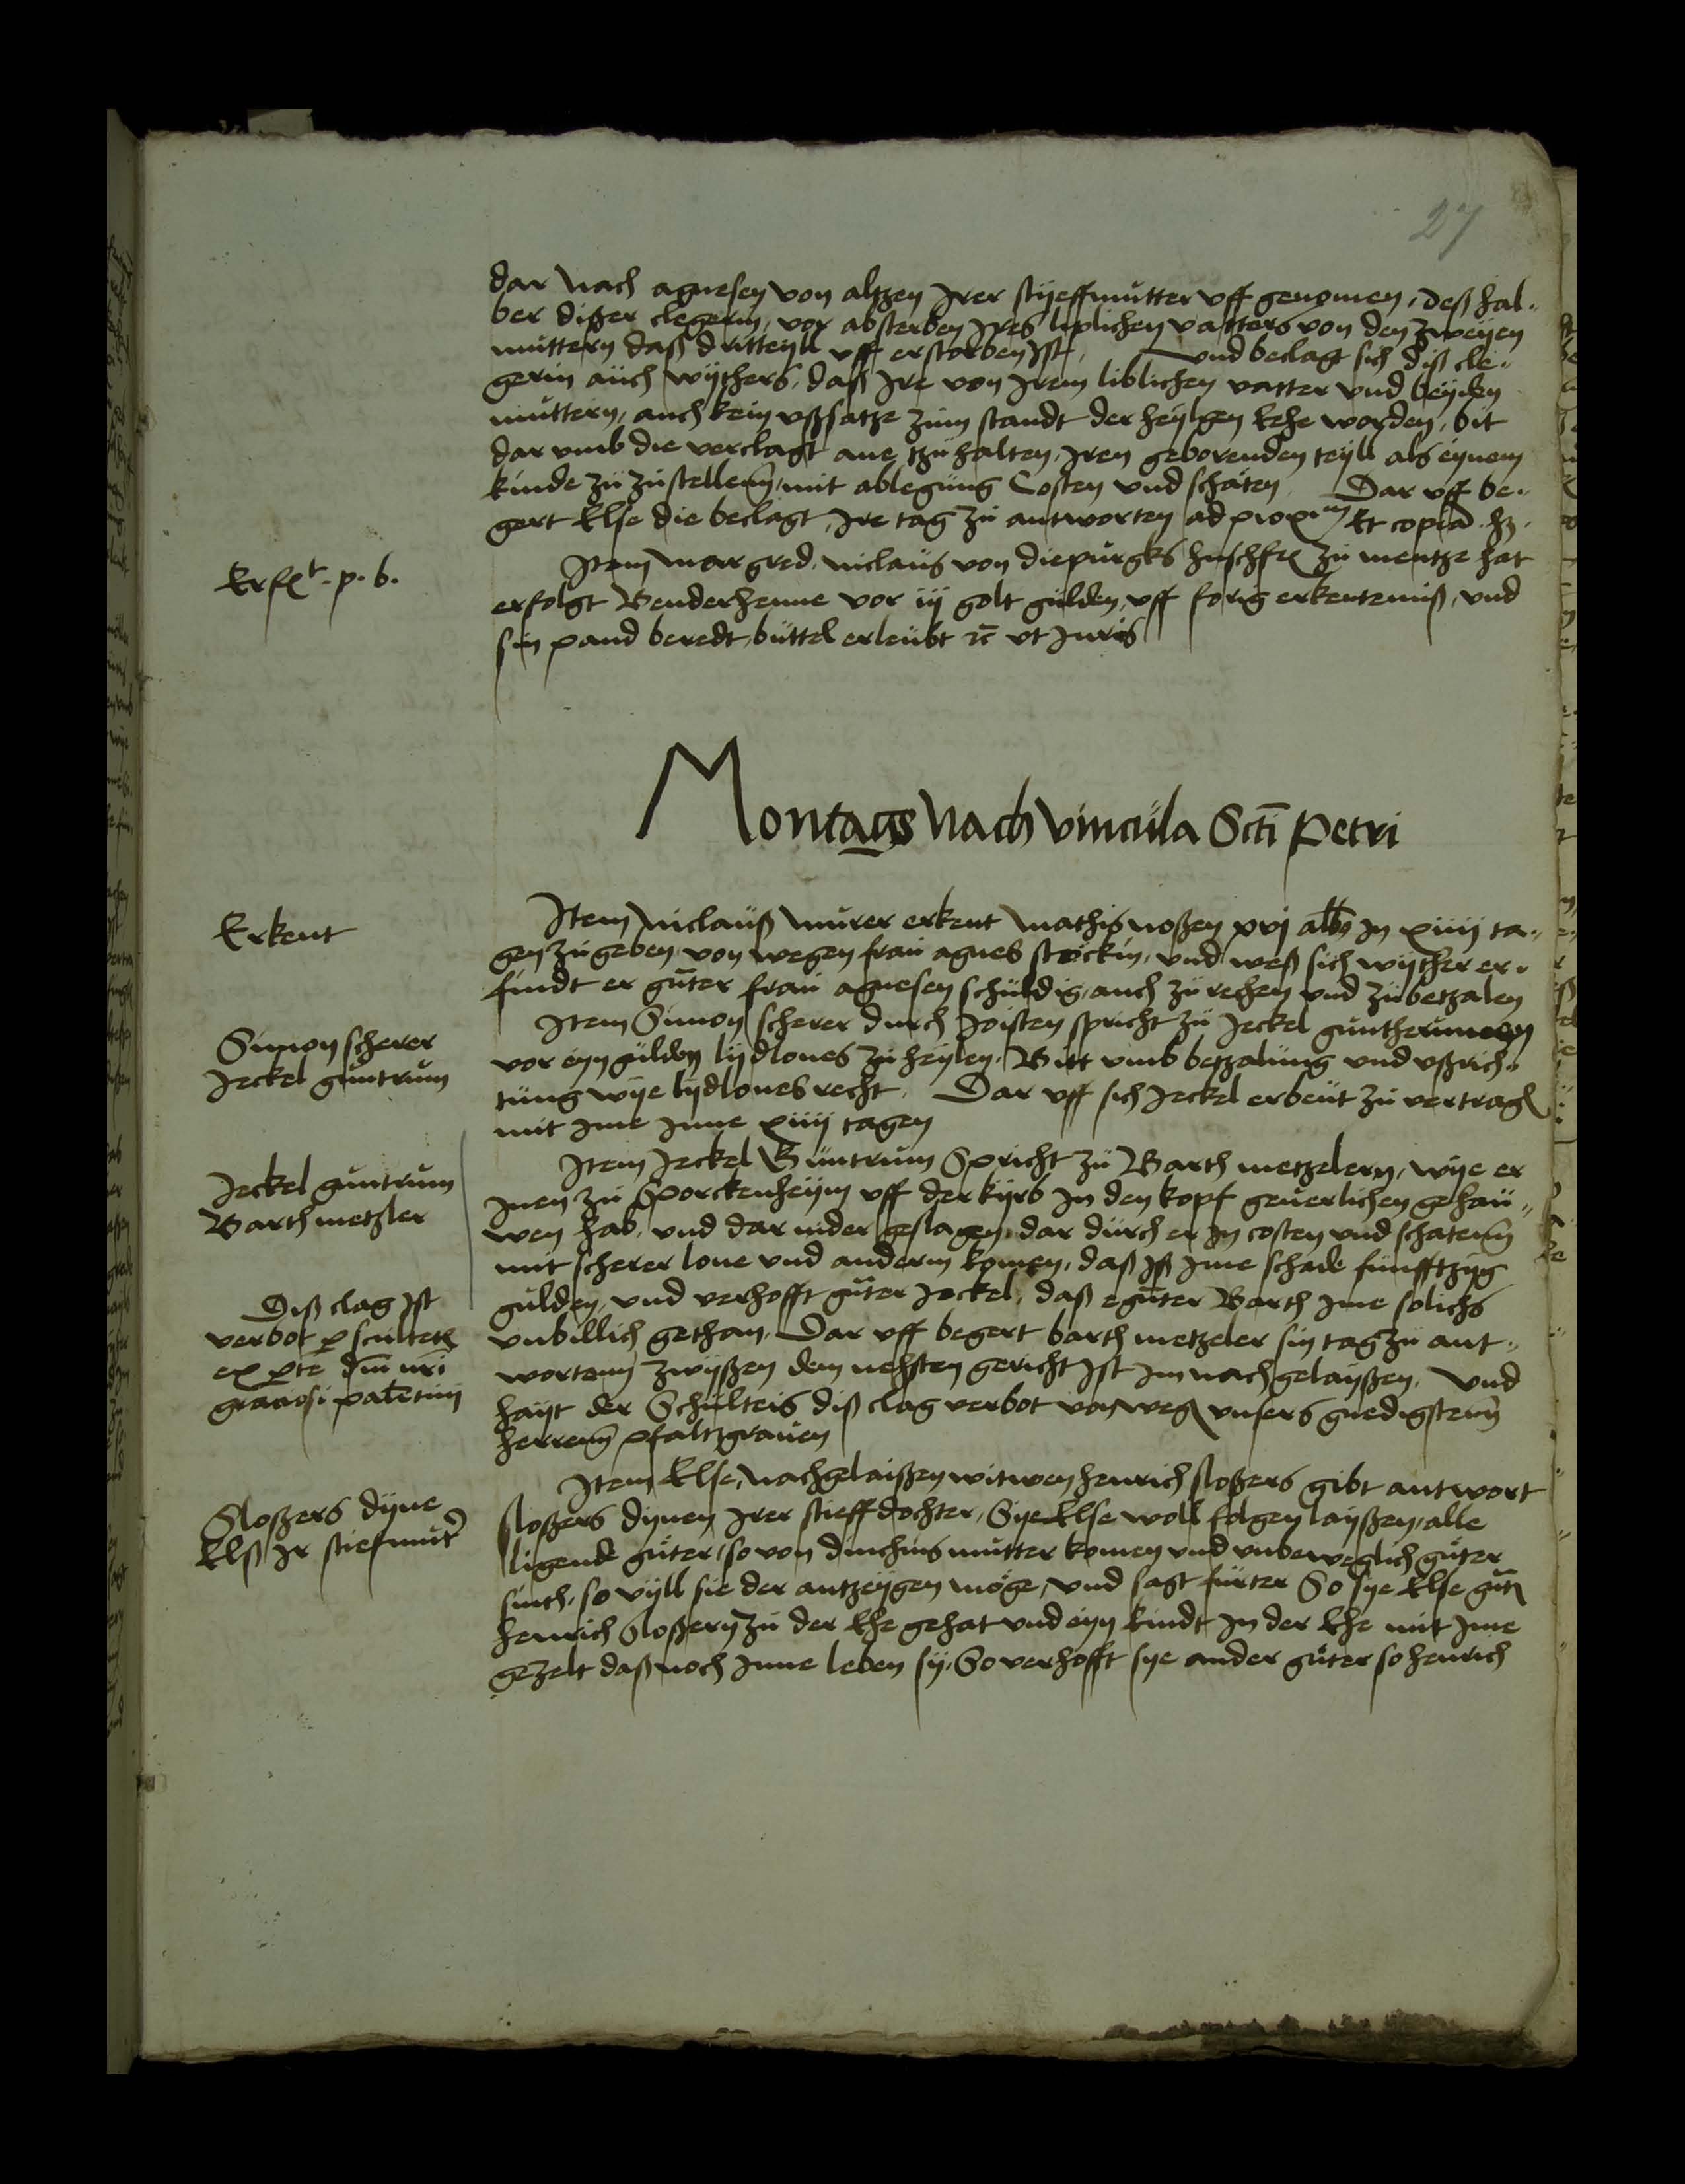 27
dar nach agnesen von altzen Irer styeffmütter vff genomen, deß hal„
ber dißer clegerin, vor absterben Ires liplichen vatters von den zweyen
muttern daß dritteyll vff erstorben Ist, Vnd beclagt sich diß cle„
gerin aüch wythers, daß Ire von Irem liblichen vatter vnd beyden
müttern, auch kein vßsatze züm standt der heylgen Eehe worden, bit
dar vmb die verclagt ane tzü halten, Iren geborenden teyll als eynem
kinde zü zü stellenn, mit ablegüng Costen vnd schaten Dar vff be„
gert Else die beclagt, Ire tag zü antworten ad proxm Et copia. hz.
Erft. p. b.
Item Margred, niclaüs von diepürgks hüsch zü mentze hat
erfolgt Benderhenne vor iij golt gülden, vff forig erkentenniß, vnd
sin pand beredt, büttel erleübt ꝛc vt Iuris
Montags Nach vincüla Scti Petri
Erkent
Item Niclaüß Mürer erkent Mathis noßen xvj alb In xiiij ta„
gen zü geben, von wegen fraü agnes stöckin, vnd weß sich wyther er„
findt er güter fraü agnesen schüldig, auch zü rechen vnd zü betzalen
Simon scherer
Jeckel güntrum
Item Simon scherer dürch Joisten spricht zü Jeckel güntherümen
vor eyn gülden lydlones zü heylen. Bitt vmb betzalüng vnd vßrich„
tüng wye lydlones recht. Dar vff sich Jeckel erbeüt zü vertragen
mit Ime Inne xiiij tagen
Jeckel guntrum
Barth metzler
Item Jeckel Güntrüm Spricht zü Barth metzelern, wye er
Inen zü Sporckenheym vff der kyrb In den kopf geüerlichen gehaü„
wen hab, vnd dar nider geslagen, dar dürch er In costen vnd schatenn
mit scherer lone vnd anderm komen, daß Iß Ime schade fünfftzyg
gülden, vnd verhofft güter Jeckel, daß egüter Barth Ime solichs
vnbillich gethan, Dar vff begert barth metzeler sin tag zü ant„
wortenn zwyßen dem nehsten gericht Ist Im nach gelayßen. Vnd
hayt der Schülteis diß clag verbot von weg vnsers gnedigstenn
herrenn pfaltzgraüen
Diß clag Ist
verbot p sculteti
ex pte dni nri
graciosi palatini
Sloßers dyne
Elß Ir stiefmuter
Item Else, Nachgelaißen witwen henrich sloßers gibt antwort
sloßers dynen Irer stieffdochter, Sye Else woll folgen layßen, alle
ligende güter, so von dinchins mutter komen vnd vnbeweglich güter
sinth, so vyll sie der antzeygen möge, vnd sagt fürter So sye Else güt
henrich Sloßern zü der Ehe gehat vnd eyn kindt In der Ehe mit Ime
gezelt daß noch Inne leben sy, So verhofft sye ander güter so henrich